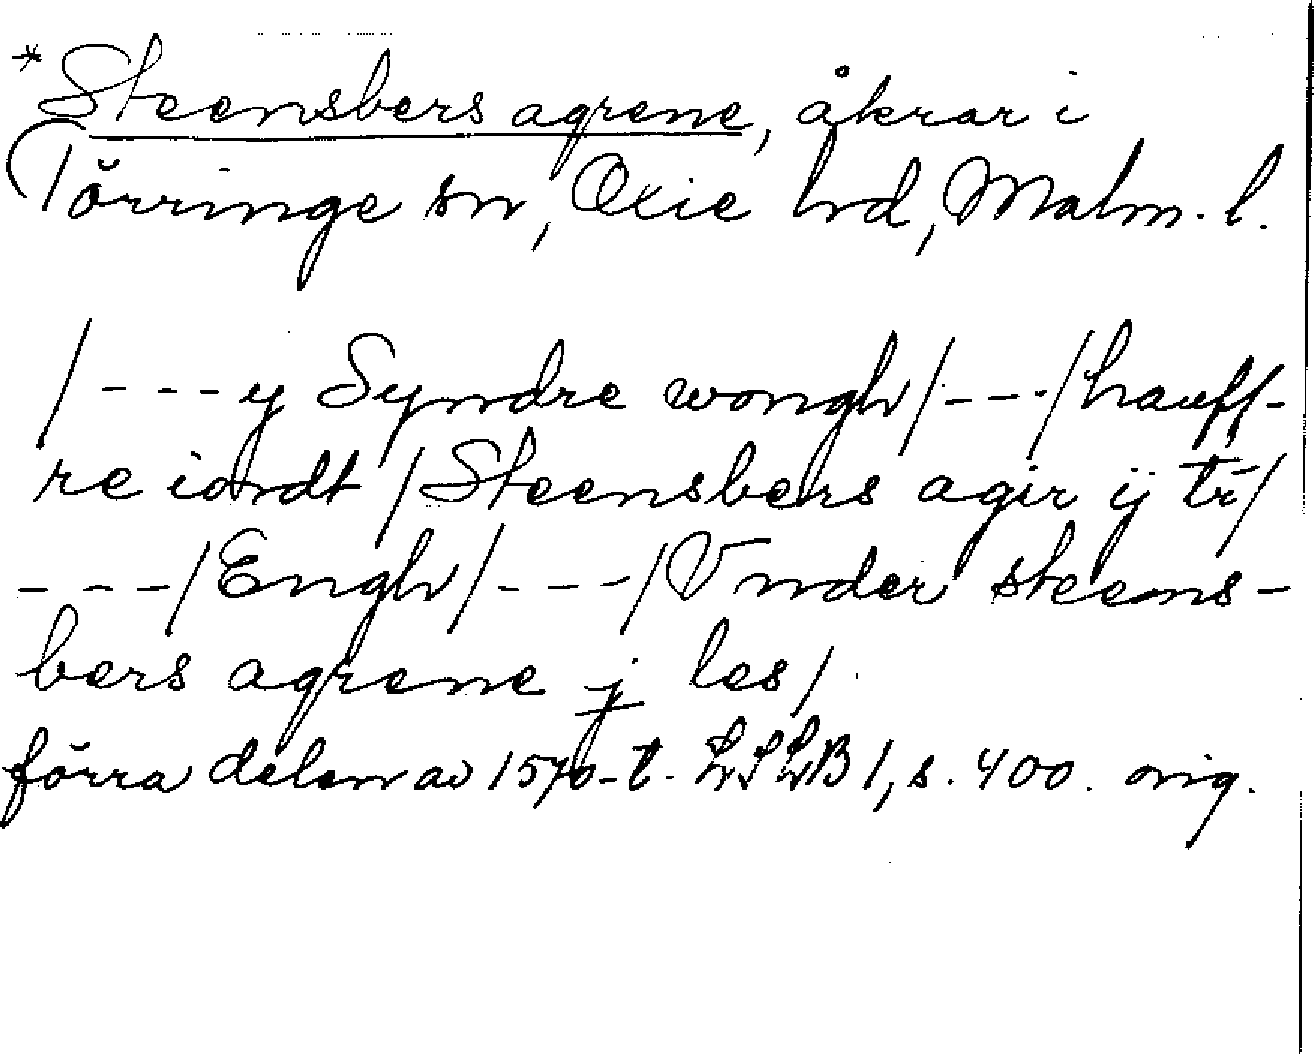 *Steensbers agrene, åkrar i
Törringe sn, Oxie hd, Malm. l.
/---y Syndre wongh/---/hauff-
re iordt/Steensbers agir ij tr/
---/Engh/---/Vnder steens-
bers agrene j les/
förra delen av 1570-t. LSLB 1, s. 400. orig.